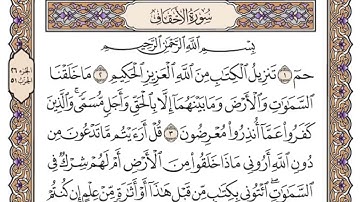 سُورَةُ الأَحْقَافِ
بِسْمِ اللَّهِ الرَّحْمَٰنِ الرَّحِيمِ
حمٓ ١ تَنزِيلُ ٱلْكِتَٰبِ مِنَ ٱللَّهِ ٱلْعَزِيزِ ٱلْحَكِيمِ ٢ مَا خَلَقْنَا
ٱلسَّمَٰوَٰتِ وَٱلْأَرْضَ وَمَا بَيْنَهُمَآ إِلَّا بِٱلْحَقِّ وَأَجَلٍ مُّسَمًّى ۚ وَٱلَّذِينَ
كَفَرُوا۟ عَمَّآ أُنذِرُوا۟ مُعْرِضُونَ ٣ قُلْ أَرَءَيْتُم مَّا تَدْعُونَ مِن
دُونِ ٱللَّهِ أَرُونِى مَاذَا خَلَقُوا۟ مِنَ ٱلْأَرْضِ أَمْ لَهُمْ شِرْكٌ فِى
ٱلسَّمَٰوَٰتِ ۖ ٱئْتُونِى بِكِتَٰبٍ مِّن قَبْلِ هَٰذَآ أَوْ أَثَٰرَةٍ مِّنْ عِلْمٍ إِن كُنتُمْ